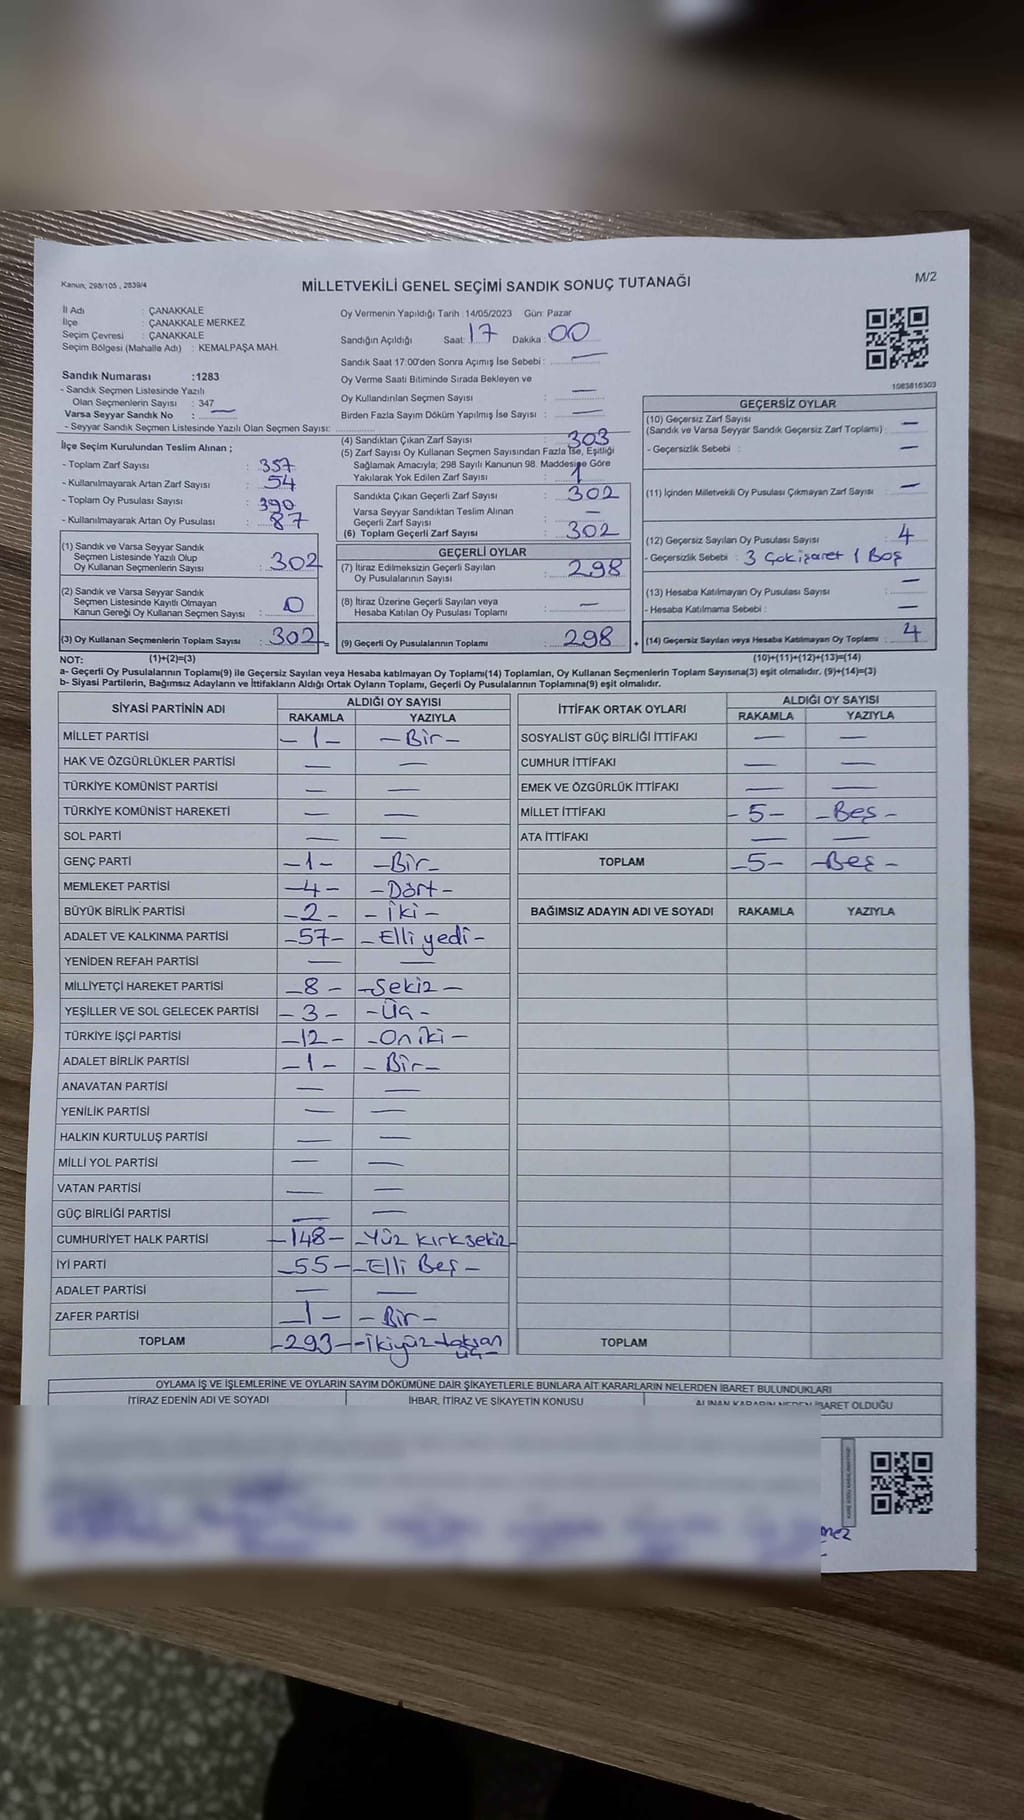 Kanun; 298/105 , 2839/4
MİLLETVEKİLİ GENEL SEÇİMİ SANDIK SONUÇ TUTANAĞI
M/2
İl Adı : ÇANAKKALE
İlçe : ÇANAKKALE MERKEZ
Seçim Çevresi : ÇANAKKALE
Seçim Bölgesi (Mahalle Adı) : KEMALPAŞA MAH.
Sandık Numarası :1283
- Sandık Seçmen Listesinde Yazılı
Olan Seçmenlerin Sayısı : 347
Varsa Seyyar Sandık No : —
- Seyyar Sandık Seçmen Listesinde Yazılı Olan Seçmen Sayısı:
Oy Vermenin Yapıldığı Tarih :14/05/2023 Gün: Pazar
Sandığın Açıldığı Saat: 17 Dakika : 00
Sandık Saat 17:00'den Sonra Açımış İse Sebebi : —
Oy Verme Saati Bitiminde Sırada Bekleyen ve
Oy Kullandırılan Seçmen Sayısı : —
Birden Fazla Sayım Döküm Yapılmış İse Sayısı : —
1083816303
İlçe Seçim Kurulundan Teslim Alınan ;
- Toplam Zarf Sayısı : 357
- Kullanılmayarak Artan Zarf Sayısı : 54
- Toplam Oy Pusulası Sayısı : 390
- Kullanılmayarak Artan Oy Pusulası : 87
(1) Sandık ve Varsa Seyyar Sandık
Seçmen Listesinde Yazılı Olup
Oy Kullanan Seçmenlerin Sayısı : 302
(2) Sandık ve Varsa Seyyar Sandık
Seçmen Listesinde Kayıtlı Olmayan
Kanun Gereği Oy Kullanan Seçmen Sayısı : 0
(3) Oy Kullanan Seçmenlerin Toplam Sayısı : 302 =
(4) Sandıktan Çıkan Zarf Sayısı : 303
(5) Zarf Sayısı Oy Kullanan Seçmen Sayısından Fazla İse, Eşitliği
Sağlamak Amacıyla; 298 Sayılı Kanunun 98. Maddesine Göre
Yakılarak Yok Edilen Zarf Sayısı : 1
Sandıkta Çıkan Geçerli Zarf Sayısı : 302
Varsa Seyyar Sandıktan Teslim Alınan
Geçerli Zarf Sayısı : —
(6) Toplam Geçerli Zarf Sayısı : 302
GEÇERLİ OYLAR
(7) İtiraz Edilmeksizin Geçerli Sayılan
Oy Pusulalarının Sayısı : 298
(8) İtiraz Üzerine Geçerli Sayılan veya
Hesaba Katılan Oy Pusulası Toplamı : —
(9) Geçerli Oy Pusulalarının Toplamı : 298 +
GEÇERSİZ OYLAR
(10) Geçersiz Zarf Sayısı
(Sandık ve Varsa Seyyar Sandık Geçersiz Zarf Toplamı) : —
- Geçersizlik Sebebi : —
(11) İçinden Milletvekili Oy Pusulası Çıkmayan Zarf Sayısı : —
(12) Geçersiz Sayılan Oy Pusulası Sayısı : 4
- Geçersizlik Sebebi : 3 Çok işaret 1 Boş
(13) Hesaba Katılmayan Oy Pusulası Sayısı : —
- Hesaba Katılmama Sebebi : —
(14) Geçersiz Sayılan veya Hesaba Katılmayan Oy Toplamı : 4
NOT: (1)+(2)=(3) (10)+(11)+(12)+(13)=(14)
a- Geçerli Oy Pusulalarının Toplamı(9) ile Geçersiz Sayılan veya Hesaba katılmayan Oy Toplamı(14) Toplamları, Oy Kullanan Seçmenlerin Toplam Sayısına(3) eşit olmalıdır. (9)+(14)=(3)
b- Siyasi Partilerin, Bağımsız Adayların ve İttifakların Aldığı Ortak Oyların Toplamı, Geçerli Oy Pusulalarının Toplamına(9) eşit olmalıdır.
SİYASİ PARTİNİN ADI ALDIĞI OY SAYISI
RAKAMLA YAZIYLA
MİLLET PARTİSİ - 1 - - Bir -
HAK VE ÖZGÜRLÜKLER PARTİSİ — —
TÜRKİYE KOMÜNİST PARTİSİ — —
TÜRKİYE KOMÜNİST HAREKETİ — —
SOL PARTİ — —
GENÇ PARTİ - 1 - - Bir -
MEMLEKET PARTİSİ - 4 - - Dört -
BÜYÜK BİRLİK PARTİSİ - 2 - - iki -
ADALET VE KALKINMA PARTİSİ - 57 - - Elli yedi -
YENİDEN REFAH PARTİSİ — —
MİLLİYETÇİ HAREKET PARTİSİ - 8 - - Sekiz -
YEŞİLLER VE SOL GELECEK PARTİSİ - 3 - - Üç -
TÜRKİYE İŞÇİ PARTİSİ - 12 - - On iki -
ADALET BİRLİK PARTİSİ - 1 - - Bir -
ANAVATAN PARTİSİ — —
YENİLİK PARTİSİ — —
HALKIN KURTULUŞ PARTİSİ — —
MİLLİ YOL PARTİSİ — —
VATAN PARTİSİ — —
GÜÇ BİRLİĞİ PARTİSİ — —
CUMHURİYET HALK PARTİSİ - 148 - - Yüz kırk sekiz -
İYİ PARTİ - 55 - - Elli Beş -
ADALET PARTİSİ — —
ZAFER PARTİSİ - 1 - - Bir -
TOPLAM - 293 - - ikiyüz doksan
üç -
İTTİFAK ORTAK OYLARI ALDIĞI OY SAYISI
RAKAMLA YAZIYLA
SOSYALİST GÜÇ BİRLİĞİ İTTİFAKI — —
CUMHUR İTTİFAKI — —
EMEK VE ÖZGÜRLÜK İTTİFAKI — —
MİLLET İTTİFAKI - 5 - - Beş -
ATA İTTİFAKI — —
TOPLAM - 5 - - Beş -
BAĞIMSIZ ADAYIN ADI VE SOYADI RAKAMLA YAZIYLA
TOPLAM
OYLAMA İŞ VE İŞLEMLERİNE VE OYLARIN SAYIM DÖKÜMÜNE DAİR ŞİKAYETLERLE BUNLARA AİT KARARLARIN NELERDEN İBARET BULUNDUKLARI
İTİRAZ EDENİN ADI VE SOYADI İHBAR, İTİRAZ VE ŞİKAYETİN KONUSU ALINAN KARARIN NEDEN İBARET OLDUĞU